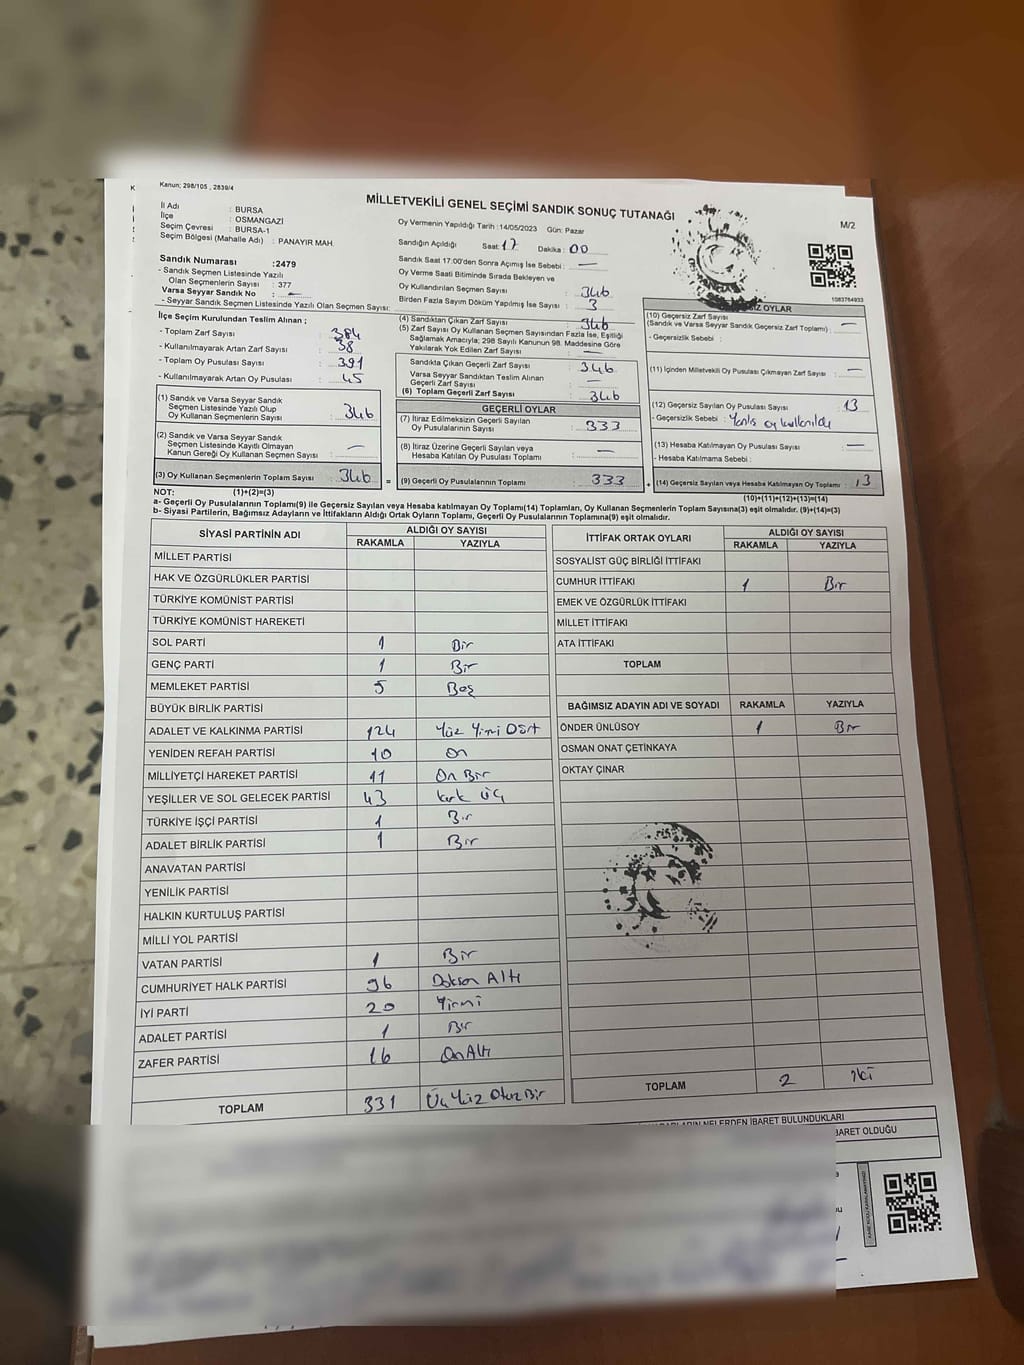 Kanun; 298/105 , 2839/4
MİLLETVEKİLİ GENEL SEÇİMİ SANDIK SONUÇ TUTANAĞI
M/2
İl Adı : BURSA
İlçe : OSMANGAZİ
Seçim Çevresi : BURSA-1
Seçim Bölgesi (Mahalle Adı) : PANAYIR MAH.
Sandık Numarası : 2479
- Sandık Seçmen Listesinde Yazılı
Olan Seçmenlerin Sayısı : 377
Varsa Seyyar Sandık No : —
- Seyyar Sandık Seçmen Listesinde Yazılı Olan Seçmen Sayısı:
Oy Vermenin Yapıldığı Tarih :14/05/2023 Gün: Pazar
Sandığın Açıldığı Saat: 17 Dakika : 00
Sandık Saat 17:00'den Sonra Açılmış İse Sebebi : —
Oy Verme Saati Bitiminde Sırada Bekleyen ve
Oy Kullandırılan Seçmen Sayısı : 346
Birden Fazla Sayım Döküm Yapılmış İse Sayısı : 3
1083764933
İlçe Seçim Kurulundan Teslim Alınan ;
- Toplam Zarf Sayısı : 384
- Kullanılmayarak Artan Zarf Sayısı : 38
- Toplam Oy Pusulası Sayısı : 391
- Kullanılmayarak Artan Oy Pusulası : 45
(1) Sandık ve Varsa Seyyar Sandık
Seçmen Listesinde Yazılı Olup
Oy Kullanan Seçmenlerin Sayısı : 346
(2) Sandık ve Varsa Seyyar Sandık
Seçmen Listesinde Kayıtlı Olmayan
Kanun Gereği Oy Kullanan Seçmen Sayısı : —
(3) Oy Kullanan Seçmenlerin Toplam Sayısı : 346
(4) Sandıktan Çıkan Zarf Sayısı : 346
(5) Zarf Sayısı Oy Kullanan Seçmen Sayısından Fazla İse, Eşitliği
Sağlamak Amacıyla; 298 Sayılı Kanunun 98. Maddesine Göre
Yakılarak Yok Edilen Zarf Sayısı : —
Sandıkta Çıkan Geçerli Zarf Sayısı : 346
Varsa Seyyar Sandıktan Teslim Alınan
Geçerli Zarf Sayısı : —
(6) Toplam Geçerli Zarf Sayısı : 346
GEÇERLİ OYLAR
(7) İtiraz Edilmeksizin Geçerli Sayılan
Oy Pusulalarının Sayısı : 333
(8) İtiraz Üzerine Geçerli Sayılan veya
Hesaba Katılan Oy Pusulası Toplamı : —
= (9) Geçerli Oy Pusulalarının Toplamı : 333
OYLAR
(10) Geçersiz Zarf Sayısı
(Sandık ve Varsa Seyyar Sandık Geçersiz Zarf Toplamı) : —
- Geçersizlik Sebebi :
(11) İçinden Milletvekili Oy Pusulası Çıkmayan Zarf Sayısı : —
(12) Geçersiz Sayılan Oy Pusulası Sayısı : 13
- Geçersizlik Sebebi : Yanlış oy kullanıldı
(13) Hesaba Katılmayan Oy Pusulası Sayısı : —
- Hesaba Katılmama Sebebi :
+ (14) Geçersiz Sayılan veya Hesaba Katılmayan Oy Toplamı : 13
NOT: (1)+(2)=(3) (10)+(11)+(12)+(13)=(14)
a- Geçerli Oy Pusulalarının Toplamı(9) ile Geçersiz Sayılan veya Hesaba katılmayan Oy Toplamı(14) Toplamları, Oy Kullanan Seçmenlerin Toplam Sayısına(3) eşit olmalıdır. (9)+(14)=(3)
b- Siyasi Partilerin, Bağımsız Adayların ve İttifakların Aldığı Ortak Oyların Toplamı, Geçerli Oy Pusulalarının Toplamına(9) eşit olmalıdır.
SİYASİ PARTİNİN ADI ALDIĞI OY SAYISI
RAKAMLA YAZIYLA
MİLLET PARTİSİ
HAK VE ÖZGÜRLÜKLER PARTİSİ
TÜRKİYE KOMÜNİST PARTİSİ
TÜRKİYE KOMÜNİST HAREKETİ
SOL PARTİ 1 Bir
GENÇ PARTİ 1 Bir
MEMLEKET PARTİSİ 5 Beş
BÜYÜK BİRLİK PARTİSİ
ADALET VE KALKINMA PARTİSİ 124 Yüz Yirmi Dört
YENİDEN REFAH PARTİSİ 10 On
MİLLİYETÇİ HAREKET PARTİSİ 11 On Bir
YEŞİLLER VE SOL GELECEK PARTİSİ 43 Kırk Üç
TÜRKİYE İŞÇİ PARTİSİ 1 Bir
ADALET BİRLİK PARTİSİ 1 Bir
ANAVATAN PARTİSİ
YENİLİK PARTİSİ
HALKIN KURTULUŞ PARTİSİ
MİLLİ YOL PARTİSİ
VATAN PARTİSİ 1 Bir
CUMHURİYET HALK PARTİSİ 96 Doksan Altı
İYİ PARTİ 20 Yirmi
ADALET PARTİSİ 1 Bir
ZAFER PARTİSİ 16 On Altı
TOPLAM 331 Üç Yüz Otuz Bir
İTTİFAK ORTAK OYLARI ALDIĞI OY SAYISI
RAKAMLA YAZIYLA
SOSYALİST GÜÇ BİRLİĞİ İTTİFAKI
CUMHUR İTTİFAKI 1 Bir
EMEK VE ÖZGÜRLÜK İTTİFAKI
MİLLET İTTİFAKI
ATA İTTİFAKI
TOPLAM
BAĞIMSIZ ADAYIN ADI VE SOYADI RAKAMLA YAZIYLA
ÖNDER ÜNLÜSOY 1 Bir
OSMAN ONAT ÇETİNKAYA
OKTAY ÇINAR
TOPLAM 2 İki
NELERDEN İBARET BULUNDUKLARI
İBARET OLDUĞU